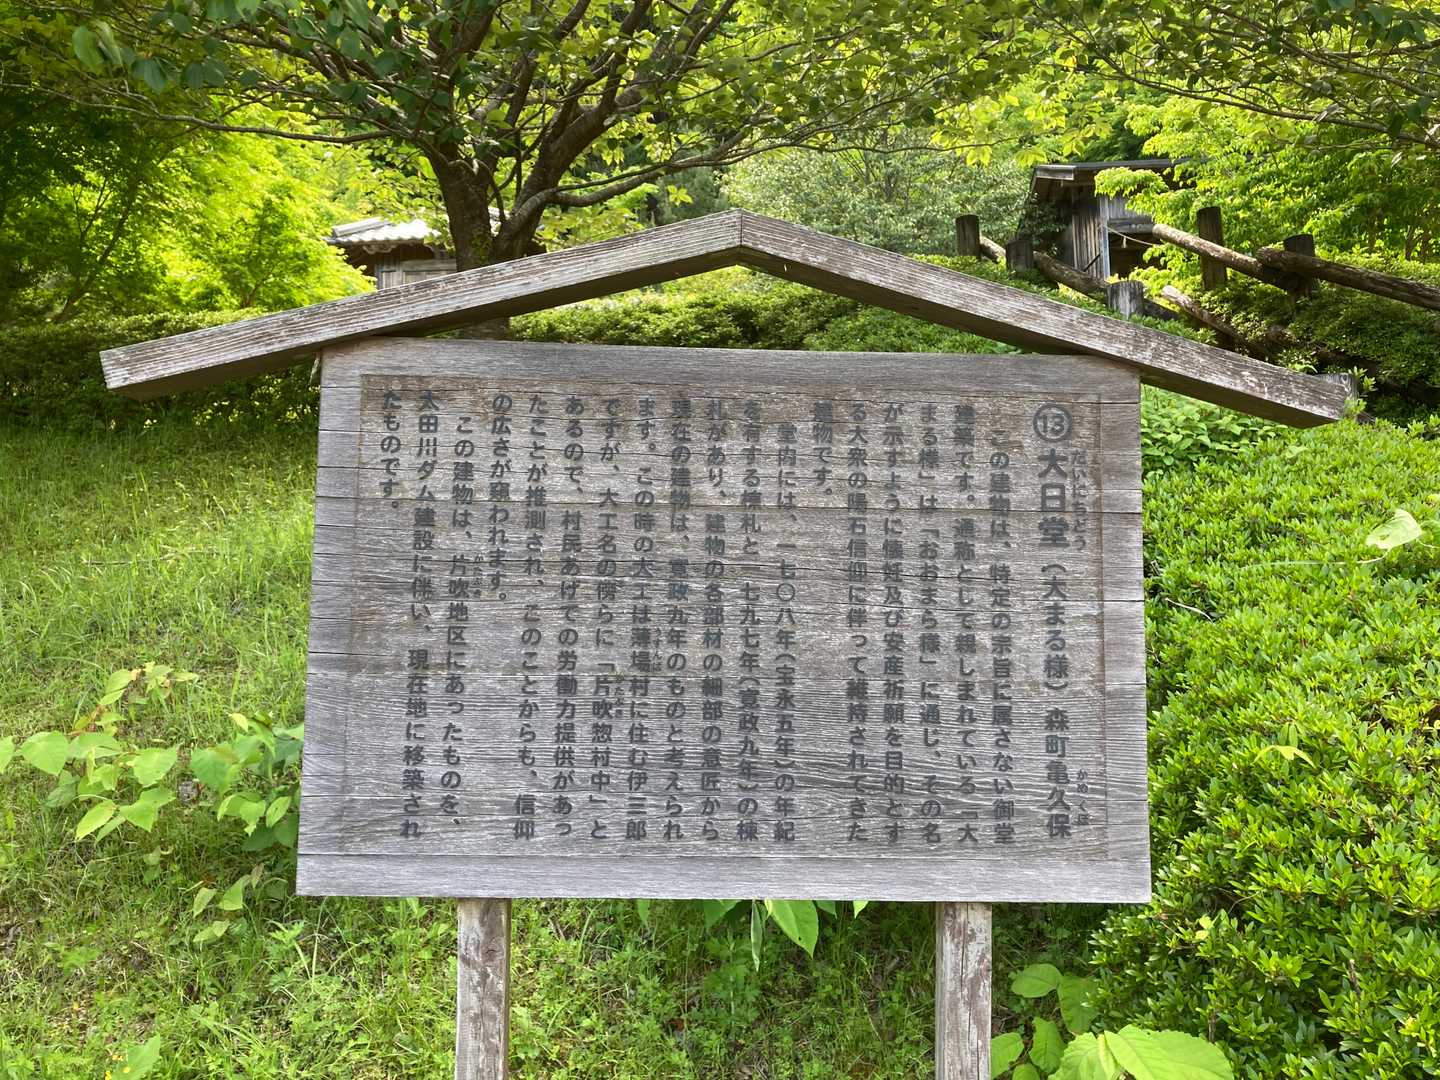 ⑬大日堂（大まる様）　森町亀久保
だいにちどう
かめくぼ
この建物は、特定の宗旨に属さない御堂
建築です。通称として親しまれている「大
まる様」は「おおまら様」に通じ、その名
が示すように懐妊及び安産祈願を目的とす
る大衆の陽石信仰に伴って維持されてきた
建物です。
堂内には、一七〇八年（宝永五年）の年紀
を有する棟札と一七九七年（寛政九年）の棟
札があり、建物の各部材の細部の意匠から
現在の建物は、寛政九年のものと考えられ
ます。この時の大工は薄場村に住む伊三郎
ですが、大工名の傍らに「片吹惣村中」と
かたぶき
あるので、村民あげての労働力提供があっ
たことが推測され、このことからも、信仰
の広さが窺われます。
この建物は、片吹地区にあったものを、
かたぶき
太田川ダム建設に伴い、現在地に移築され
たものです。